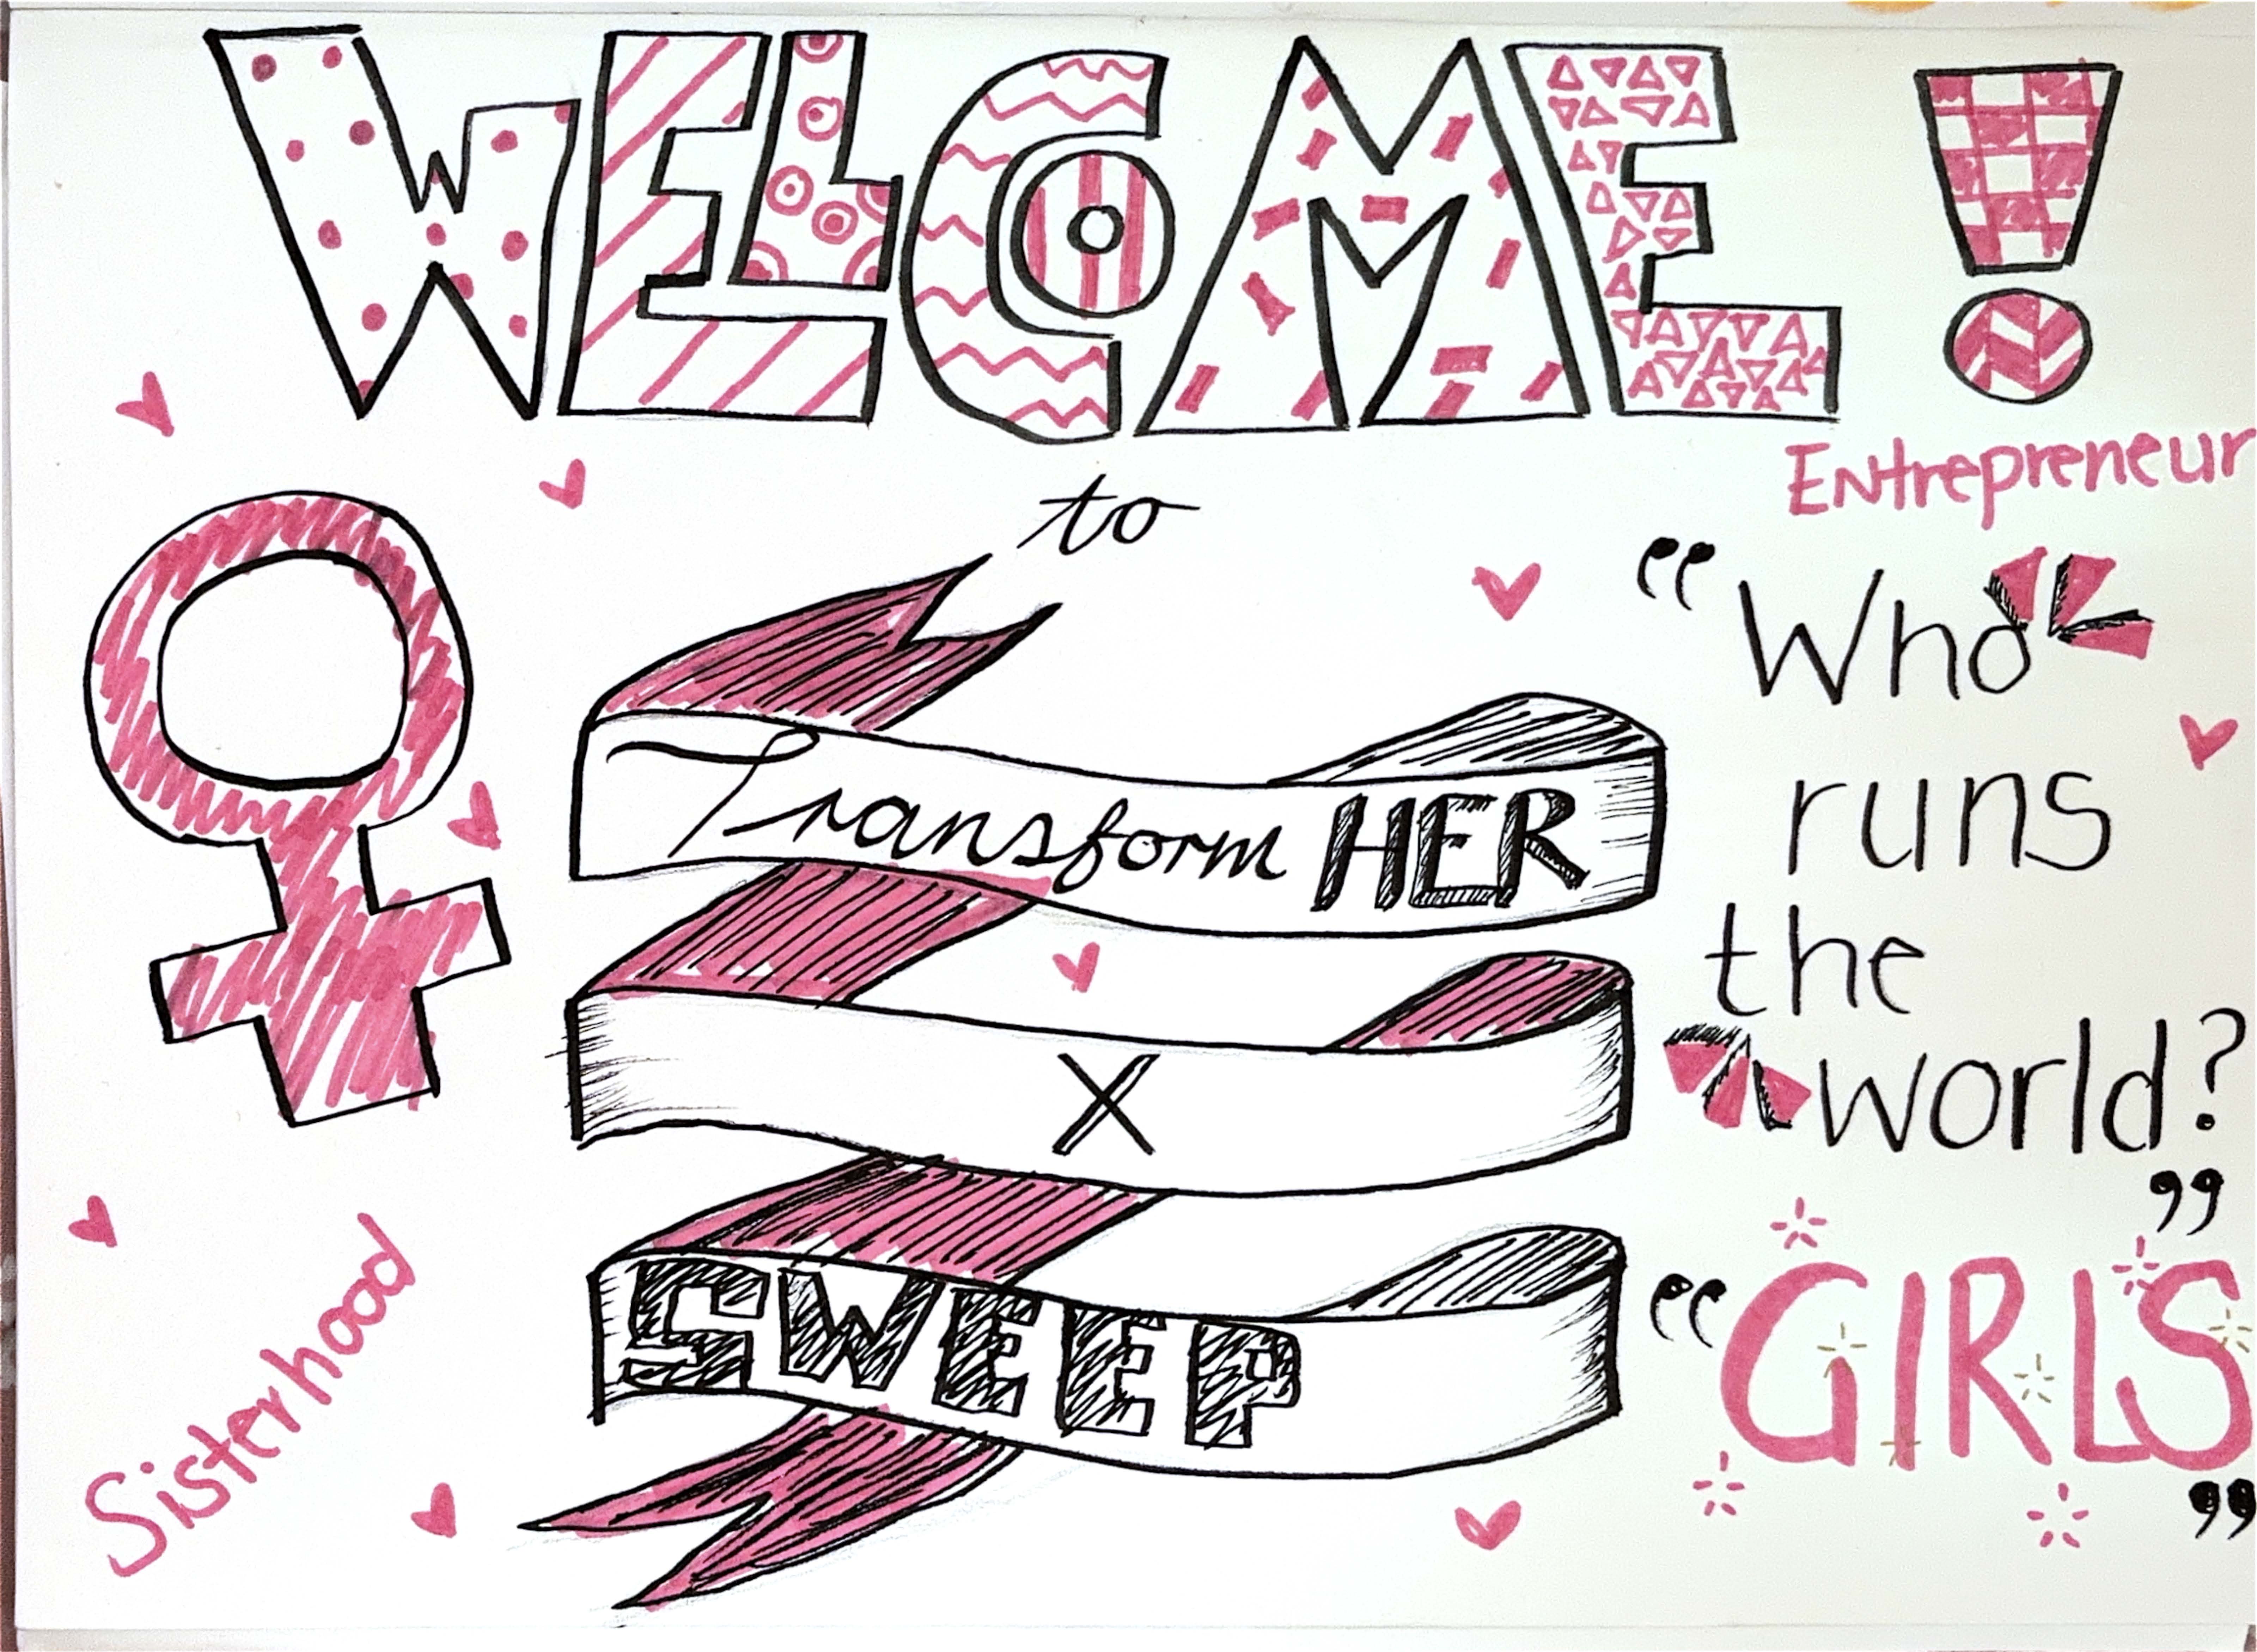 WELCOME!
to
Transform HER
X
SWEEP
Entrepreneur
“Who
runs
the
world?
”
“GIRLS
”
Sisterhood